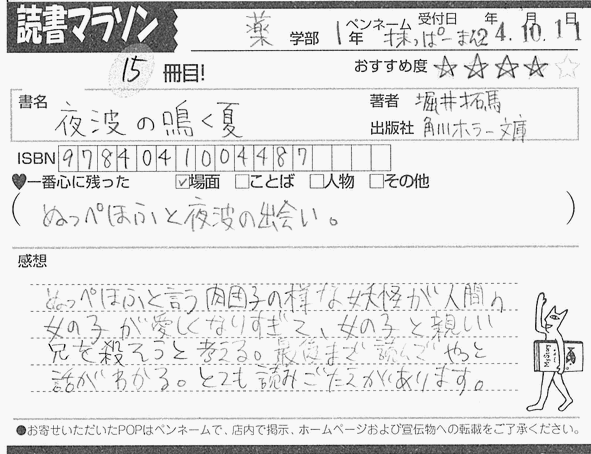 読書マラソン
薬 学部 1年 ペンネーム 抹っぱーまん 受付日 24年10月11日
15冊目! おすすめ度 ★★★★☆
書名 夜波の鳴く夏 著者 堀井拓馬
出版社 角川ホラー文庫
ISBN 9784041004487
♥一番心に残った ☑場面 □ことば □人物 □その他
(ぬっぺほふと夜波の出会い。)
感想
ぬっぺほふと言う肉団子の様な妖怪が人間の
女の子が愛しくなりすぎて、女の子と親しい
兄を殺そうと考える。最後まで読んでやっと
話がわかる。とても読みごたえがあります。
●お寄せいただいたPOPはペンネームで、店内で掲示、ホームページおよび宣伝物への転載をご了承ください。